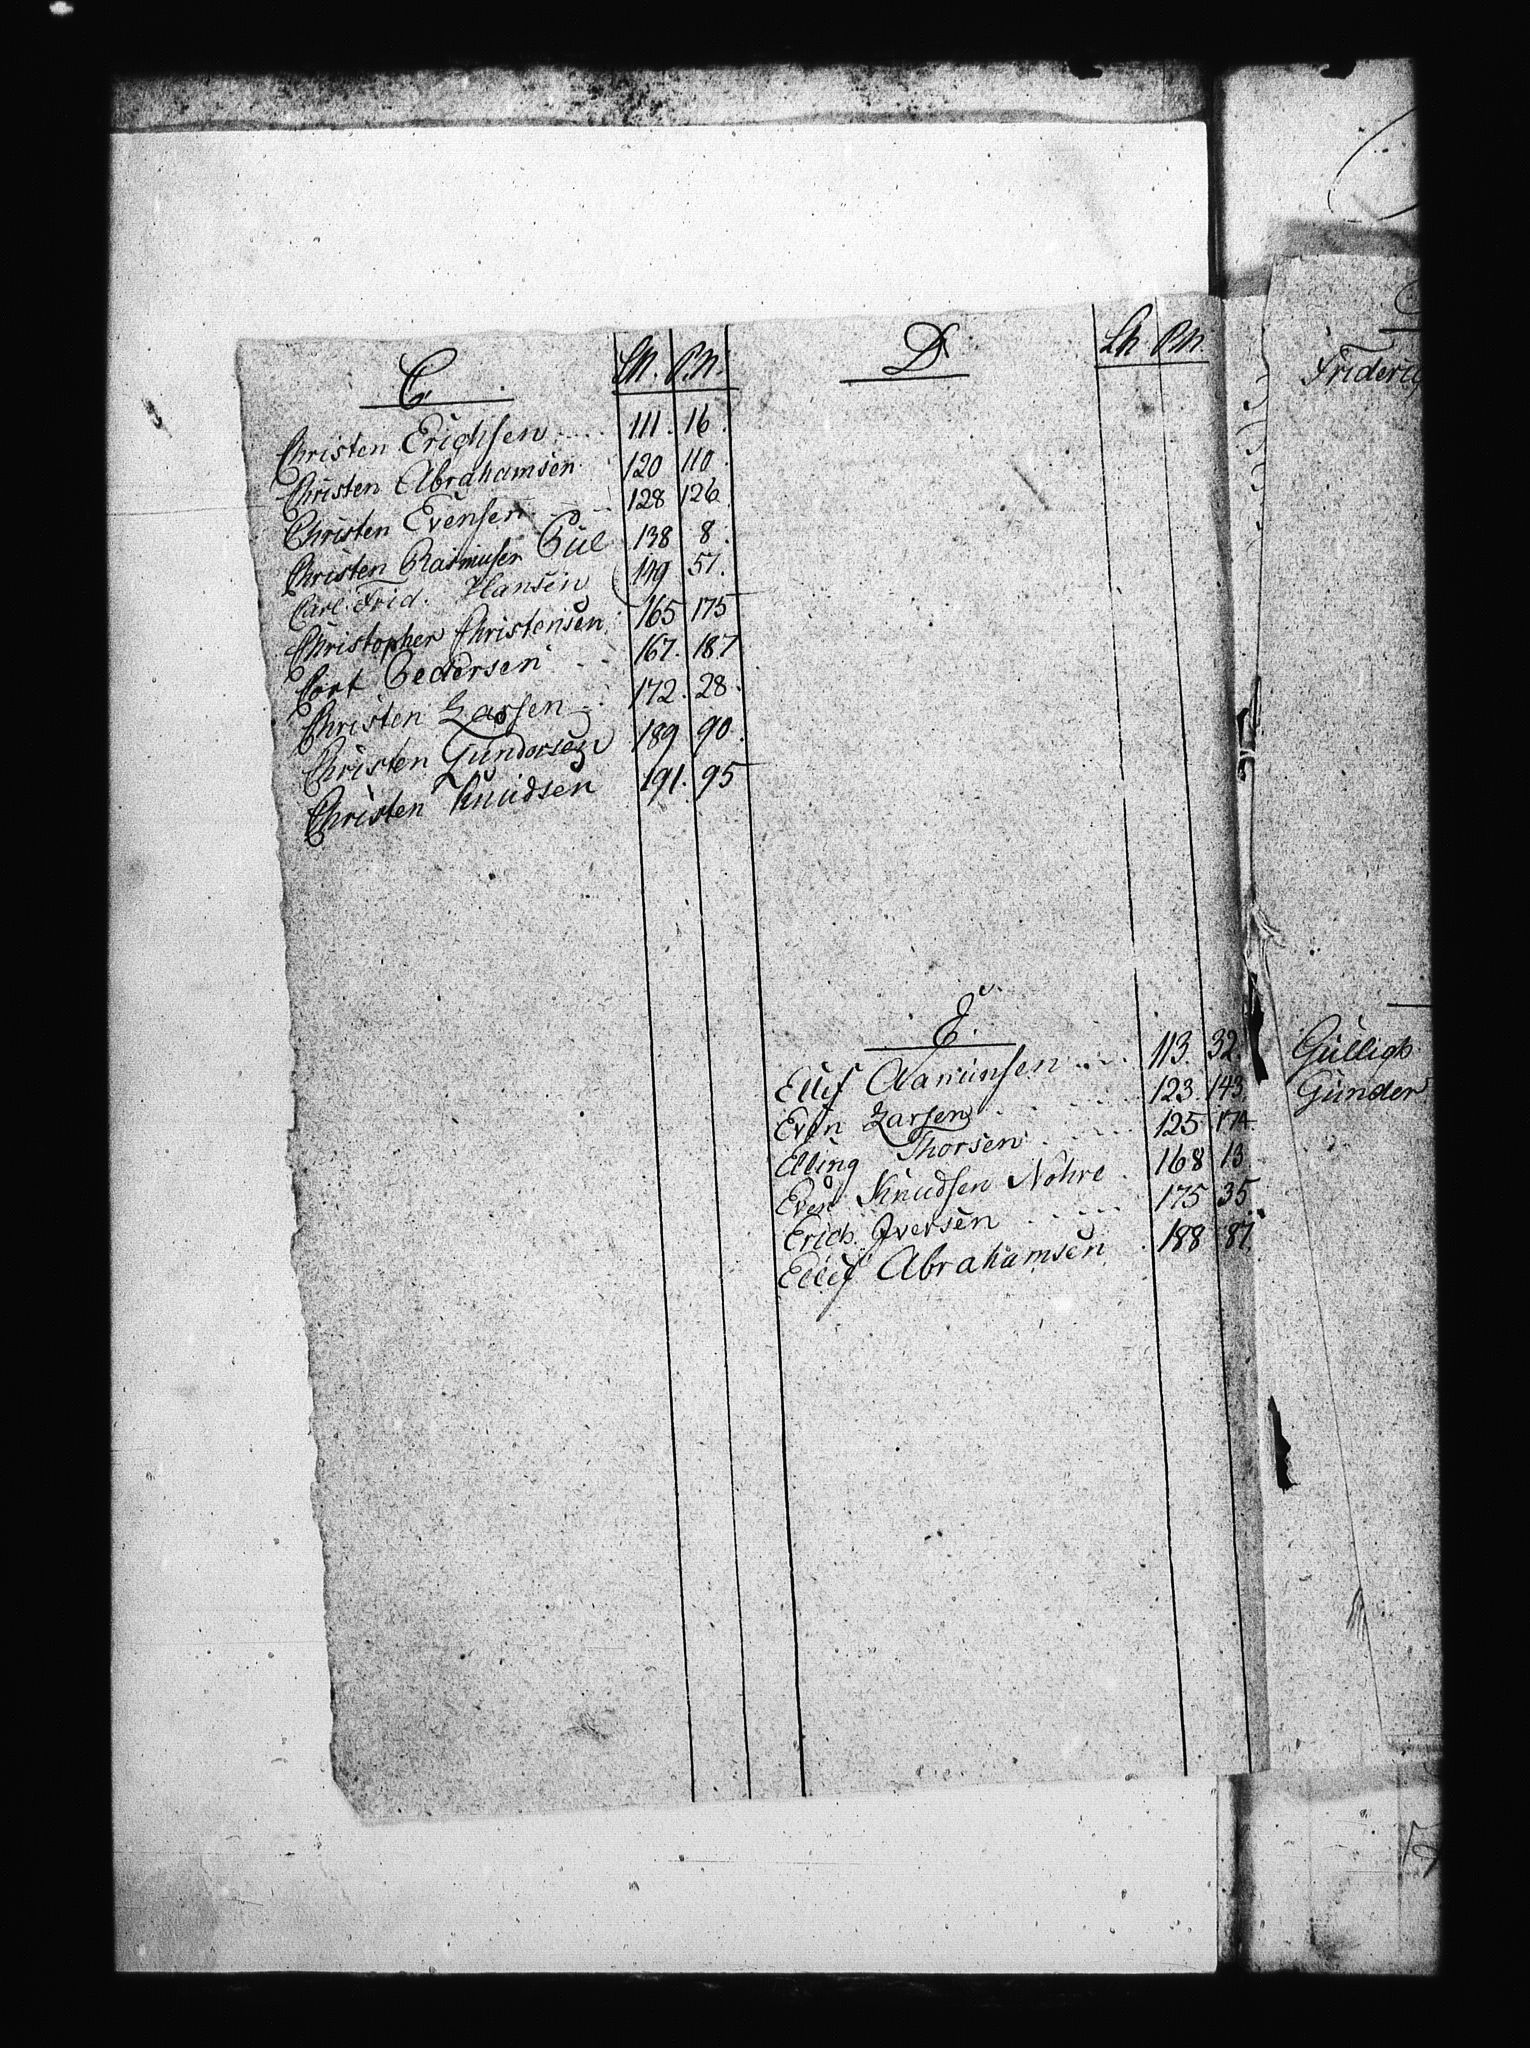 C. LN. P.N.
Christen Erichsen 111. 16.
Christen Abrahamsen 120 110.
Christen Evensen 128 126.
Christen Rasmusen 138 8.
Carl Frid. Hansen 149 51.
Christopher Christensen 165 175
Cort Pedersen 167. 187
Christen Larsen 172. 28.
Christen Gundersen 189 90.
Christen Knudsen 191. 95
D LN P.N.
E.
Ellef 113. 32.
Even Larsen 123. 143.
Elling Thorsen 125 174.
Even Knudsen Nohre 168 13
Erich Iversen 175 35.
Ellef Abrahamsen 188 87.
Frideric
Gulligh
Gunder